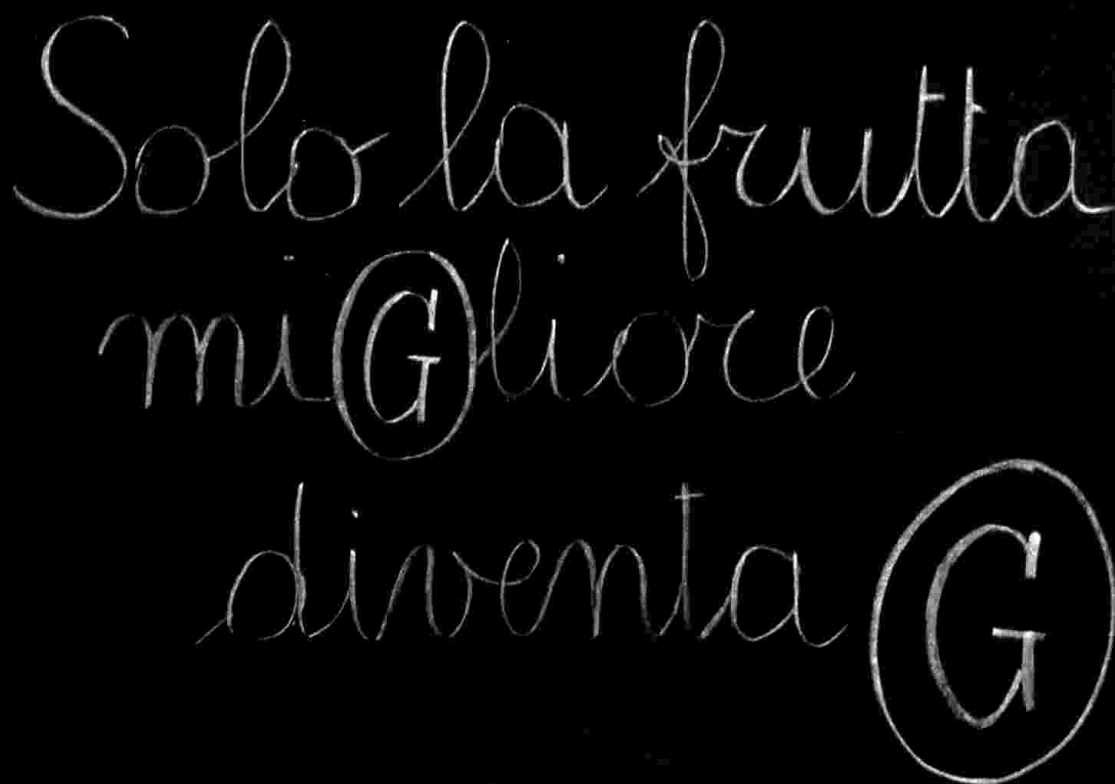 Solo la frutta
miGliore
diventa G